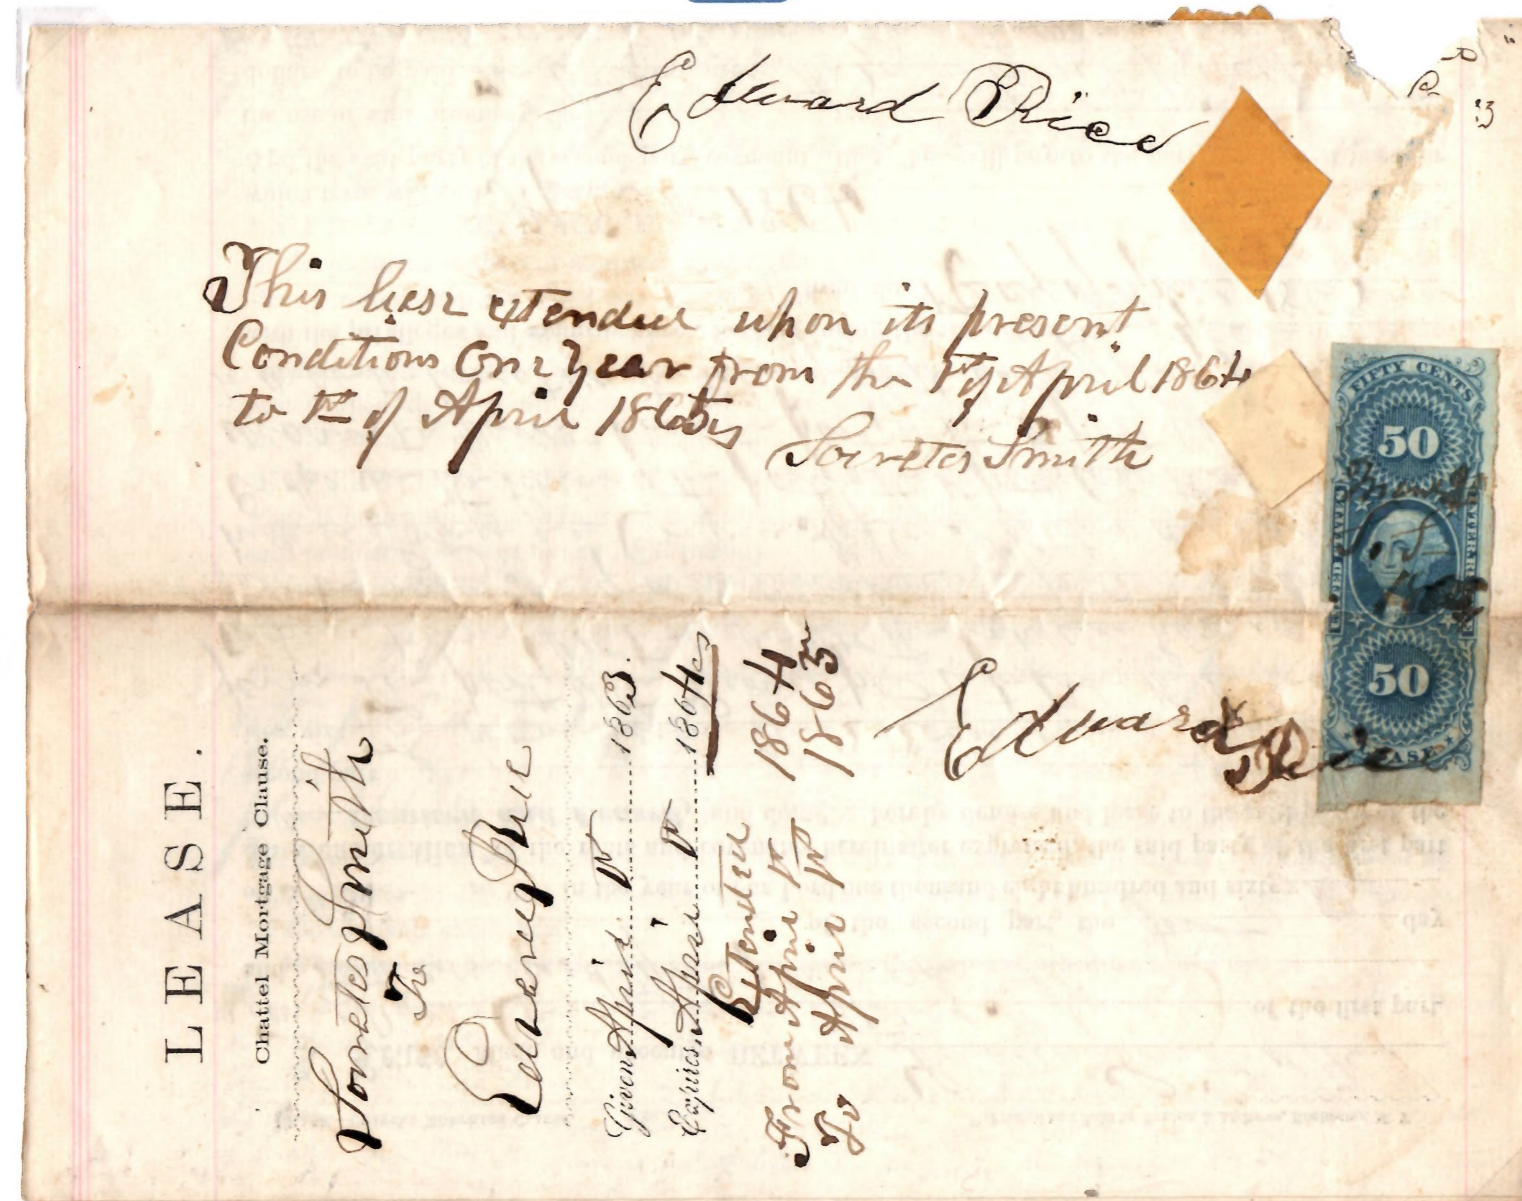 Edward Rice
This lease extended upon its present
Conditions One Year from the 1st of April 1864
to 1st of April 1865
Socretes Smith
FIFTY CENTS
50
UNITED STATES
S. S.
50
Edward Rice
LEASE.
Chattel Mortgage Clause.
Socretes Smith
To
Edward Rice
Given April 1st 1863.
Expires April 1st 1864
Extended
From April 1st 1864
To April 1st 1865